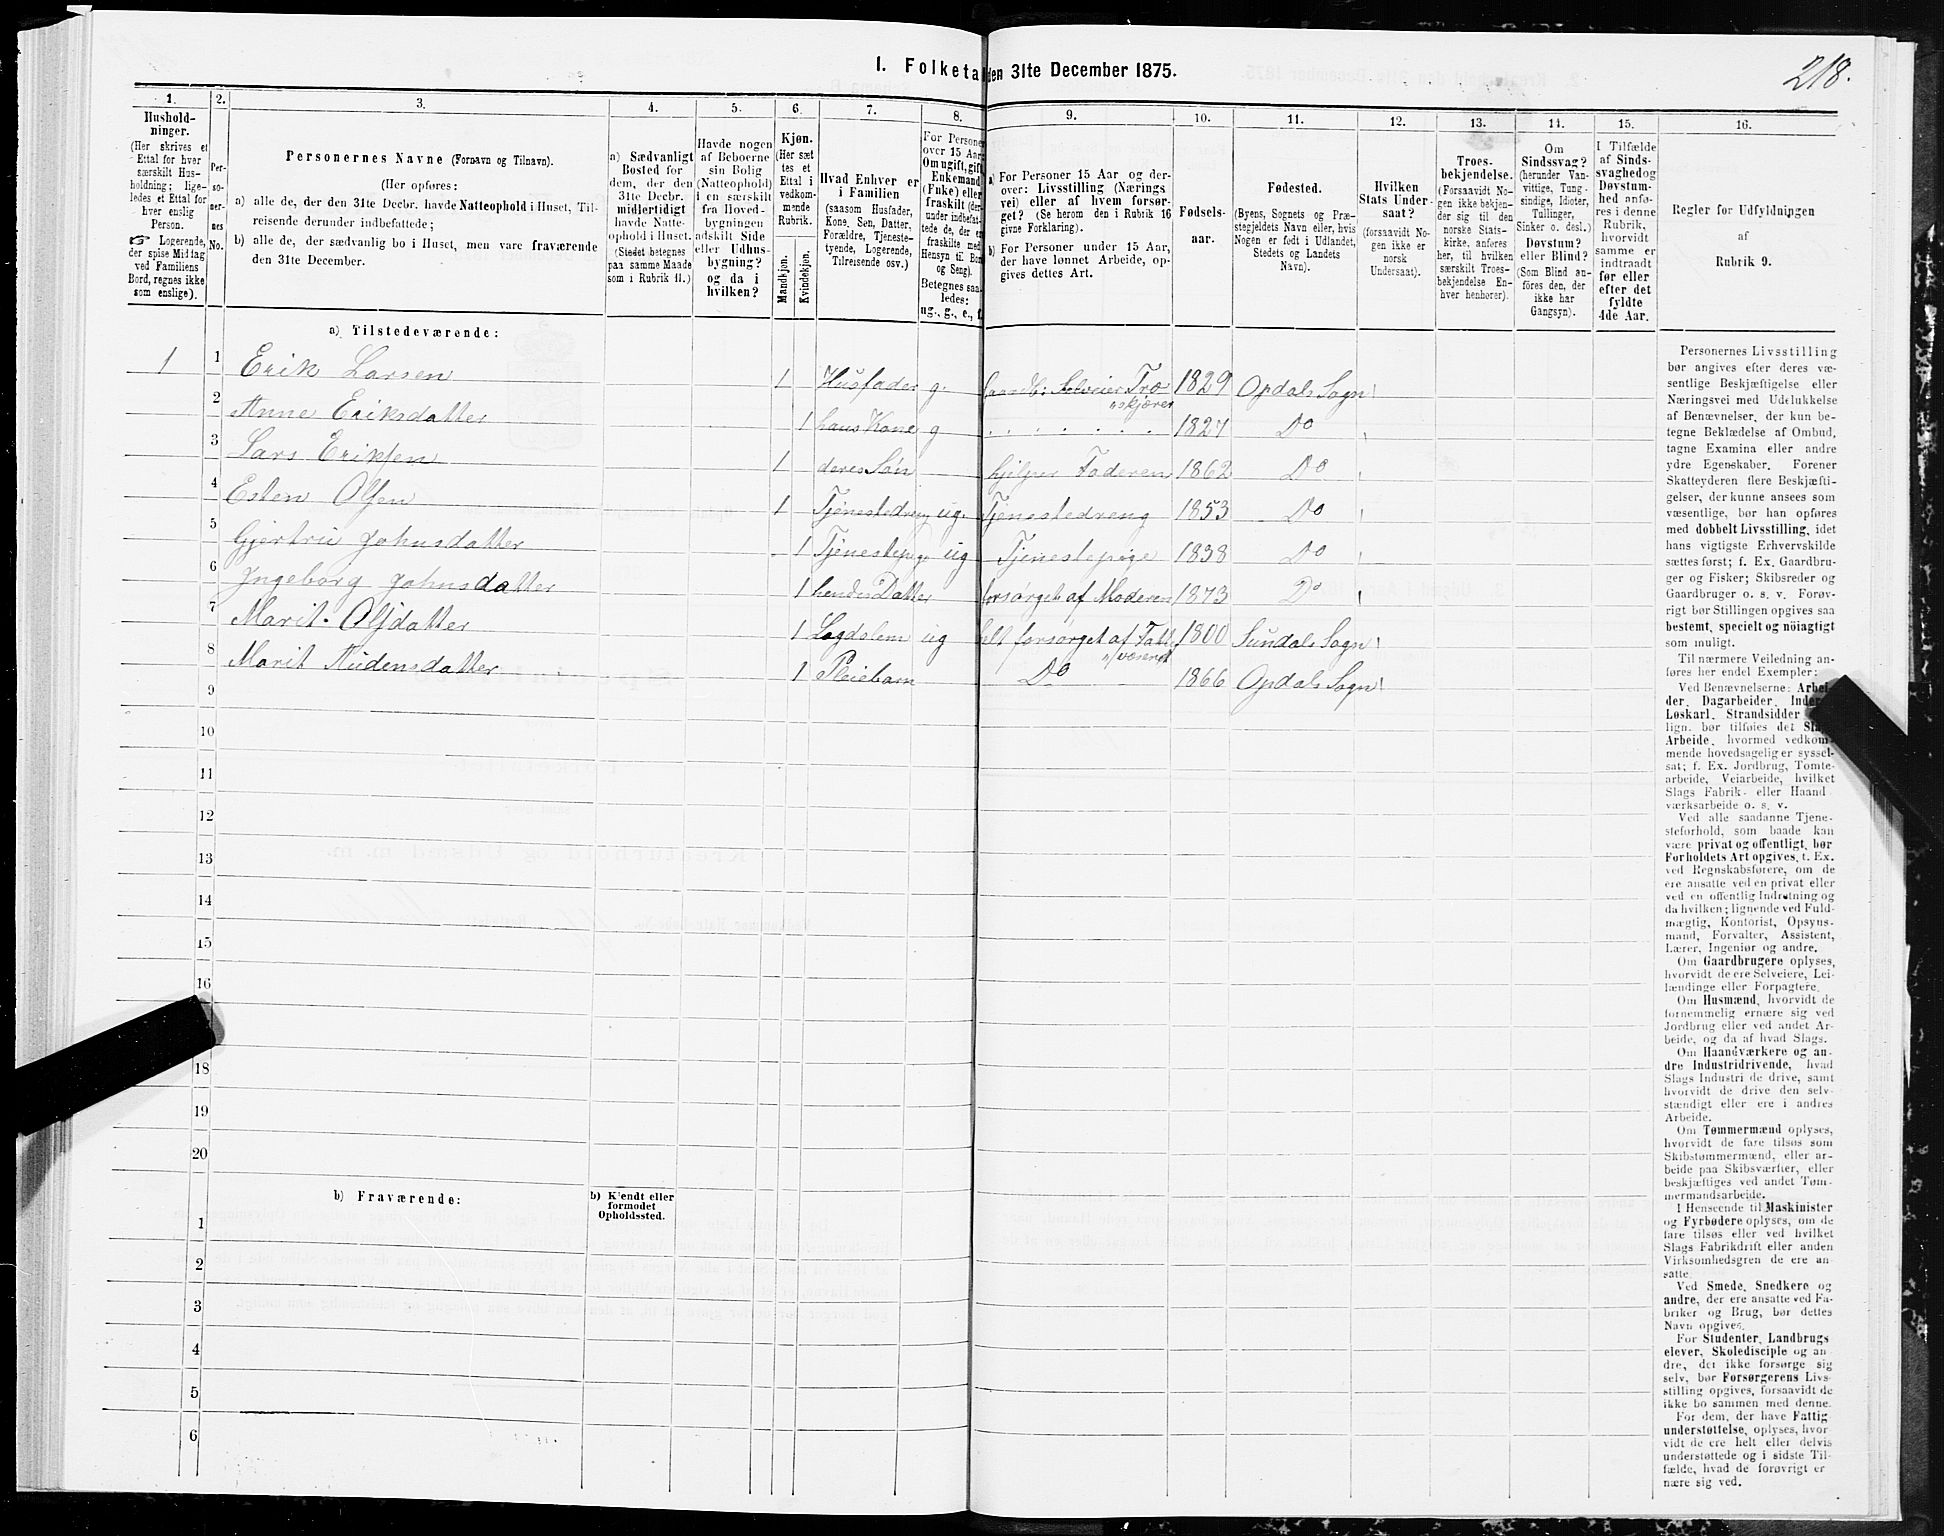 218.
I. Folketa den 31te December 1875.
1. 2. 3. 4. 5. 6. 7. 8. 9. 10. 11. 12. 13. 14. 15. 16.
Hushold-
ninger.
(Her skrives et
Ettal for hver
særskilt Hus-
holdning; lige-
ledes et Ettal for
hver enslig
Person.
☞ Logerende,
der spise Middag
ved Familiens
Bord, regnes ikke
som enslige).
Per-
so-
ner-
nes
No.
Personernes Navne (Fornavn og Tilnavn).
(Her opføres:
a) alle de, der den 31te Decbr. havde Natteophold i Huset, Til-
reisende derunder indbefattede;
b) alle de, der sædvanlig bo i Huset, men vare fraværende
den 31te December.
a) Sædvanligt
Bosted for
dem, der den
31te Decbr.
midlertidigt
havde Natte-
ophold i Huset.
(Stedet betegnes
paa samme Maade
som i Rubrik 11.)
Havde nogen
af Beboerne
sin Bolig
(Natteophold)
i en særskilt
fra Hoved-
bygningen
adskilt Side
eller Udhus-
bygning?
og da i
hvilken?
Kjøn.
(Her sæt
tes et
Ettal i
vedkom-
mende
Rubrik.
Mandkjøn.
Kvindekjøn.
Hvad Enhver er
i Familien
(saasom Husfader,
Kone, Søn, Datter,
Forældre, Tjeneste-
tyende, Logerende,
Tilreisende osv.)
For Persone
over 15 Aar
Om ugift, gift
Enkemand
(Enke) eller
fraskilt (der-
under indbefat-
tede de, der er
fraskilte med
Hensyn til Bor
og Seng).
Betegnes saa-
ledes:
ug., g., e., f.
a) For Personer 15 Aar og der-
over: Livsstilling (Nærings
vei) eller af hvem forsør-
get? (Se herom den i Rubrik 16
givne Forklaring).
b) For Personer under 15 Aar,
der have lønnet Arbeide, op-
gives dettes Art.
Fødsels-
aar.
Fødested.
(Byens, Sognets og Præ-
stegjeldets Navn eller, hvis
Nogen er født i Udlandet,
Stedets og Landets
Navn).
Hvilken
Stats Under-
saat?
(forsaavidt No-
gen ikke er
norsk
Undersaat).
Troes-
bekjendelse.
(Forsaavidt No-
gen ikke bekjen-
der sig til den
norske Stats-
kirke, anføres
her, til hvilken
særskilt Troes-
bekjendelse En-
hver henhører).
Om
Sindssvag?
(herunder Van-
vittige, Tung-
sindige, Idioter,
Tullinger,
Sinker o. desl.)
Døvstum?
eller Blind?
(Som Blind an-
føres den, der
ikke har
Gangsyn).
I Tilfælde
af Sinds-
svaghed og
Døvstum-
hed anfø-
res i denne
Rubrik,
hvorvidt
samme er
indtraadt
før eller
efter det
fyldte
4de Aar.
Regler for Udfyldningen
af
Rubrik 9.
a) Tilstedeværende:
1 1 Erik Larsen 1 Husfader g. Gaardb: Selveier Træ 1829 Opdals Sogn
"skjærer
2 Anne Eriksdatter 1 hans Kone g . . . . . . 1827 Do
3 Lars Eriksen 1 deres Søn hjelper Faderen 1862 Do
4 Esten Olsen 1 Tjenestedreng ug. Tjenestedreng 1853 Do
5 Gjertru Johnsdatter 1 Tjenestepige ug Tjenestepige 1838 Do
6 Ingeborg Johnsdatter 1 hendes Datter forsørget af Moderen 1873 Do
7 Marit Olsdatter 1 Lægdslem ug helt forsørget af Fattig 1800 Sundals Sogn
"væsenet
8 Marit Audensdatter 1 Pleiebarn Do 1866 Opdals Sogn
9
10
11
12
13
14
15
16
18
19
20
b) Fraværende:
b) Kjendt eller
formodet
Opholdssted.
1
2
3
4
5
6
Personernes Livsstilling
bør angives efter deres væ-
sentlige Beskjæftigelse eller
Næringsvei med Udelukkelse
af Benævnelser, der kun be-
tegne Beklædelse af Ombud,
tagne Examina eller andre
ydre Egenskaber. Forener
Skatteyderen flere Beskjæfti-
gelser, der kunne ansees som
væsentlige, bør han opføres
med dobbelt Livsstilling, idet
hans vigtigste Erhvervskilde
sættes først; f. Ex. Gaardbru-
ger og Fisker; Skibsreder og
Gaardbruger o. s. v. Forøv-
rigt bør Stillingen opgives saa
bestemt, specielt og nöiagtigt
som muligt.
Til nærmere Veiledning an-
føres her endel Exempler:
Ved Benævnelserne: Arbei-
der, Dagarbeider, Inder
Løskarl, Strandsidder
lign. bør tilføies det Slags
Arbeide, hvormed vedkom-
mende hovedsagelig er syssel-
sat; f. Ex. Jordbrug, Tomte-
arbeide, Veiarbeide, hvilket
Slags Fabrik- eller Haand
værksarbeide o. s. v.
Ved alle saadanne Tjene-
steforhold, som baade kan
være privat og offentligt, bør
Forholdets Art opgives, t. Ex.
ved Regnskabsførere, om de
ere ansatte ved en privat eller
ved en offentlig Indretning og
da hvilken; lignende ved Fuld-
mægtig, Kontorist, Opsyns-
mand, Forvalter, Assistent,
Lærer, Ingeniør og andre.
Om Gaardbrugere oplyses,
hvorvidt de ere Selveiere, Lei-
lændinge eller Forpagtere.
Om Husmænd, hvorvidt de
fornemmelig ernære sig ved
Jordbrug eller ved andet Ar-
beide, og da af hvad Slags.
Om Haandværkere og an-
dre Industridrivende, hvad
Slags Industri de drive, samt
hvorvidt de drive den selv-
stændigt eller ere i andres
Arbeide.
Om Tømmermænd oplyses,
hvorvidt de fare tilsøs som
Skibstømmermænd, eller ar-
beide paa Skibsværfter, eller
beskjæftiges ved andet Tøm-
mermandsarbeide.
I Henseende til Maskinister
og Fyrbødere oplyses, om de
fare tilsøs eller ved hvilket
Slags Fabrikdrift eller anden
Virksomhedsgren de ere an-
satte.
Ved Smede, Snedkere og
andre, der ere ansatte ved Fa-
briker og Brug, bør dettes
Navn opgives.
For Studenter, Landbrugs
elever, Skoledisciple og an
dre, der ikke forsørge sig
selv, bør Forsørgerens Livs-
stilling opgives, forsaavidt de
ikke bo sammen med denne.
For dem, der have Fattig
understøttelse, oplyses, hvor
vidt de ere helt eller delvis
understøttede og i sidste Til-
fælde, hvad de forøvrigt er
nære sig ved.